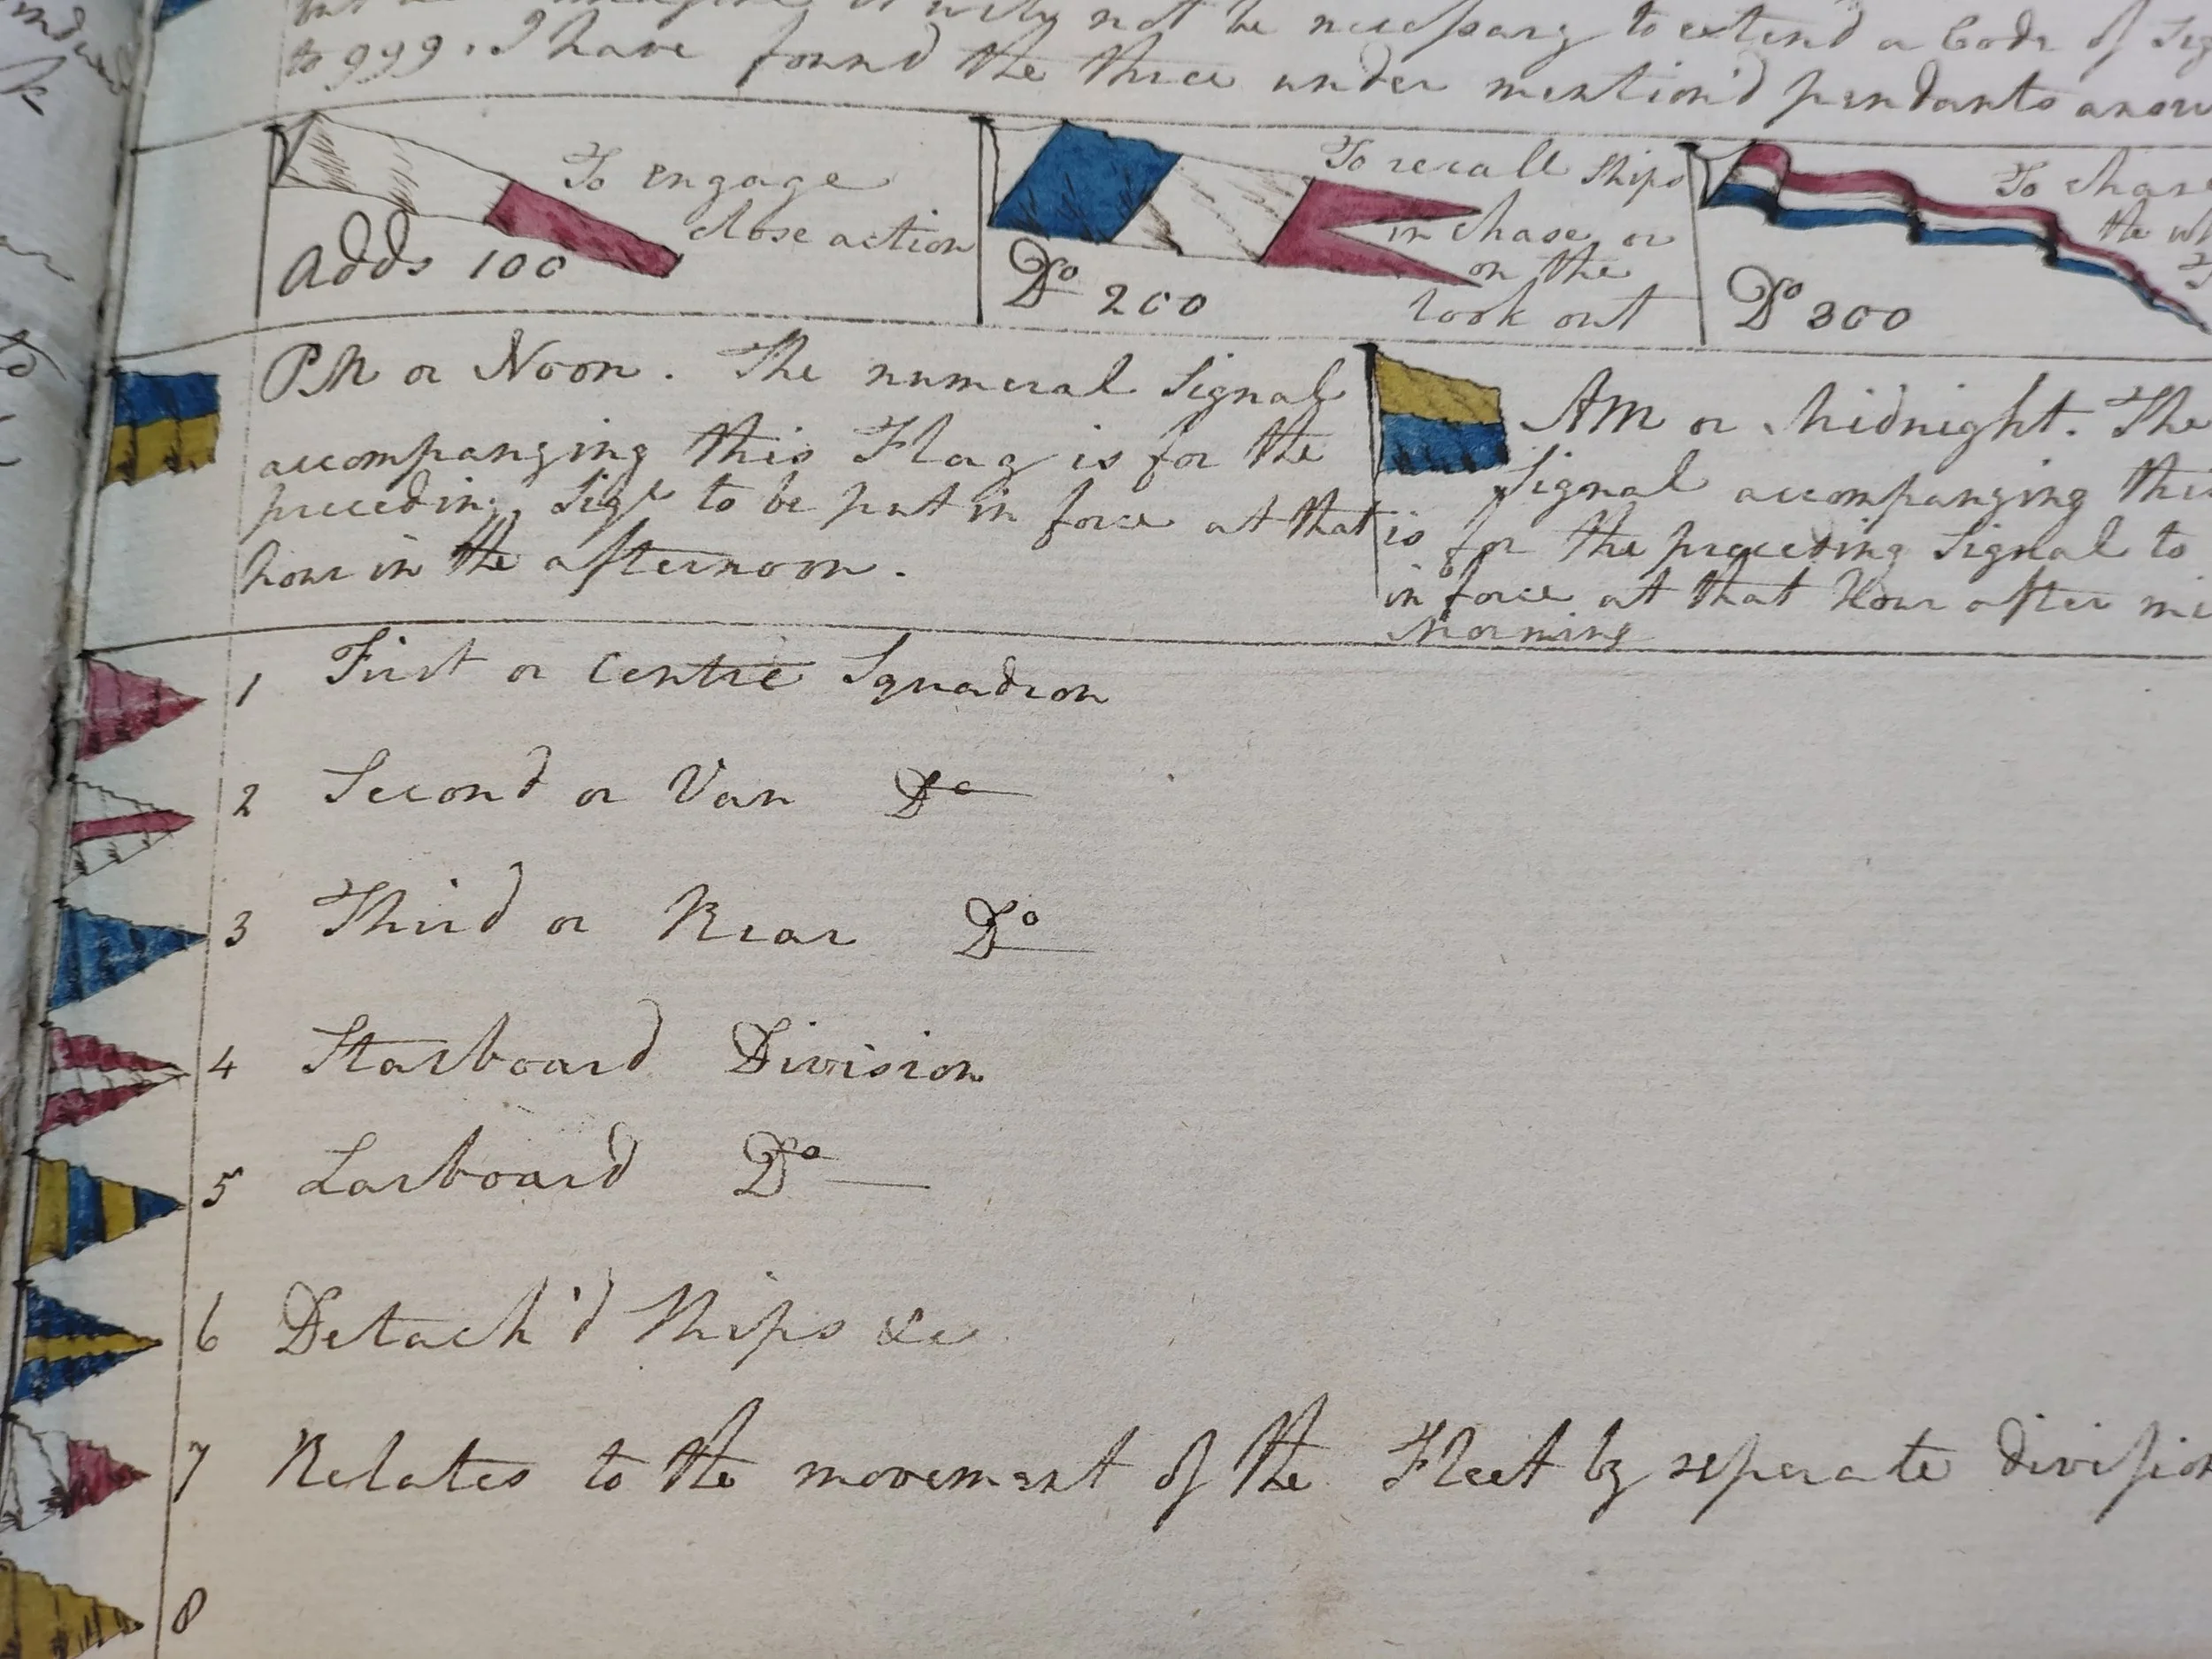 not be necessary to extend a Code of Sig
to 999. I have found the three under mention'd pendants answ
To engage
close action
Adds 100
To recall Ships
in chase or
on the
look out
Do 200
To chase
the
Do 300
PM or Noon. The numeral Signal
accompanying this Flag is for the
preceding Sigl to be put in force at that
hour in the afternoon.
AM or Midnight. The
Signal accompanying this
is for the preceding Signal to
in force at that Hour after mi
Morning
1 First or Centre Squadron
2 Second or Van Do
3 Third or Rear Do
4 Starboard Division
5 Larboard Do
6 Detach'd Ships &c
7 Relates to the movement of the Fleet by seperate division
8